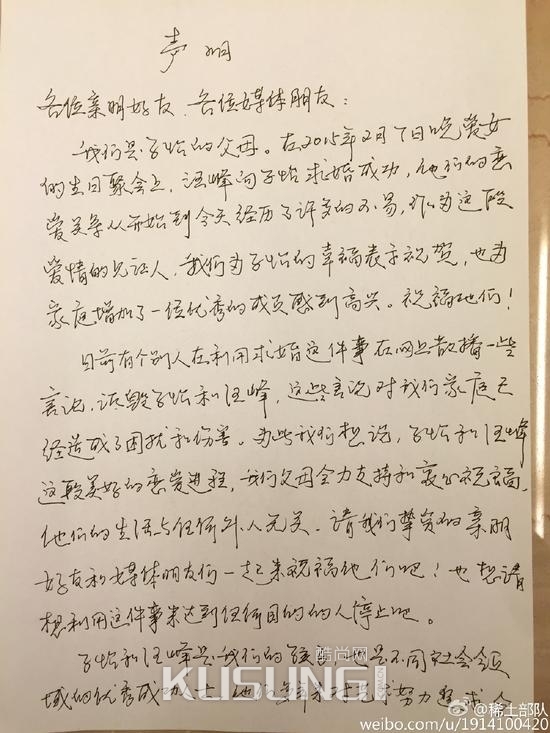 声明
各位亲朋好友、各位媒体朋友：
我们是子怡的父母。在2015年2月7日晚爱女
的生日聚会上，汪峰向子怡求婚成功，他们的恋
爱关系从开始到今天经历了许多的不易，作为这段
爱情的见证人，我们为子怡的幸福表示祝贺，也为
家庭增加了一位优秀的成员感到高兴。祝福他们！
目前有个别人在利用求婚这件事在网上散播一些
言论，诋毁子怡和汪峰，这些言论对我们家庭已
经造成了困扰和伤害。为此我们想说，子怡和汪峰
这段美好的恋爱进程，我们父母全力支持和衷心祝福，
他们的生活与任何外人无关。请我们挚爱的亲朋
好友和媒体朋友们一起来祝福他们吧！也想请
想利用这件事来达到任何目的的人停止吧。
子怡和汪峰是我们的孩子，也是不同社会领
域的优秀成
努力
酷尚网
KUSUNG
.COM
@稀土部队
weibo.com/u/1914100420